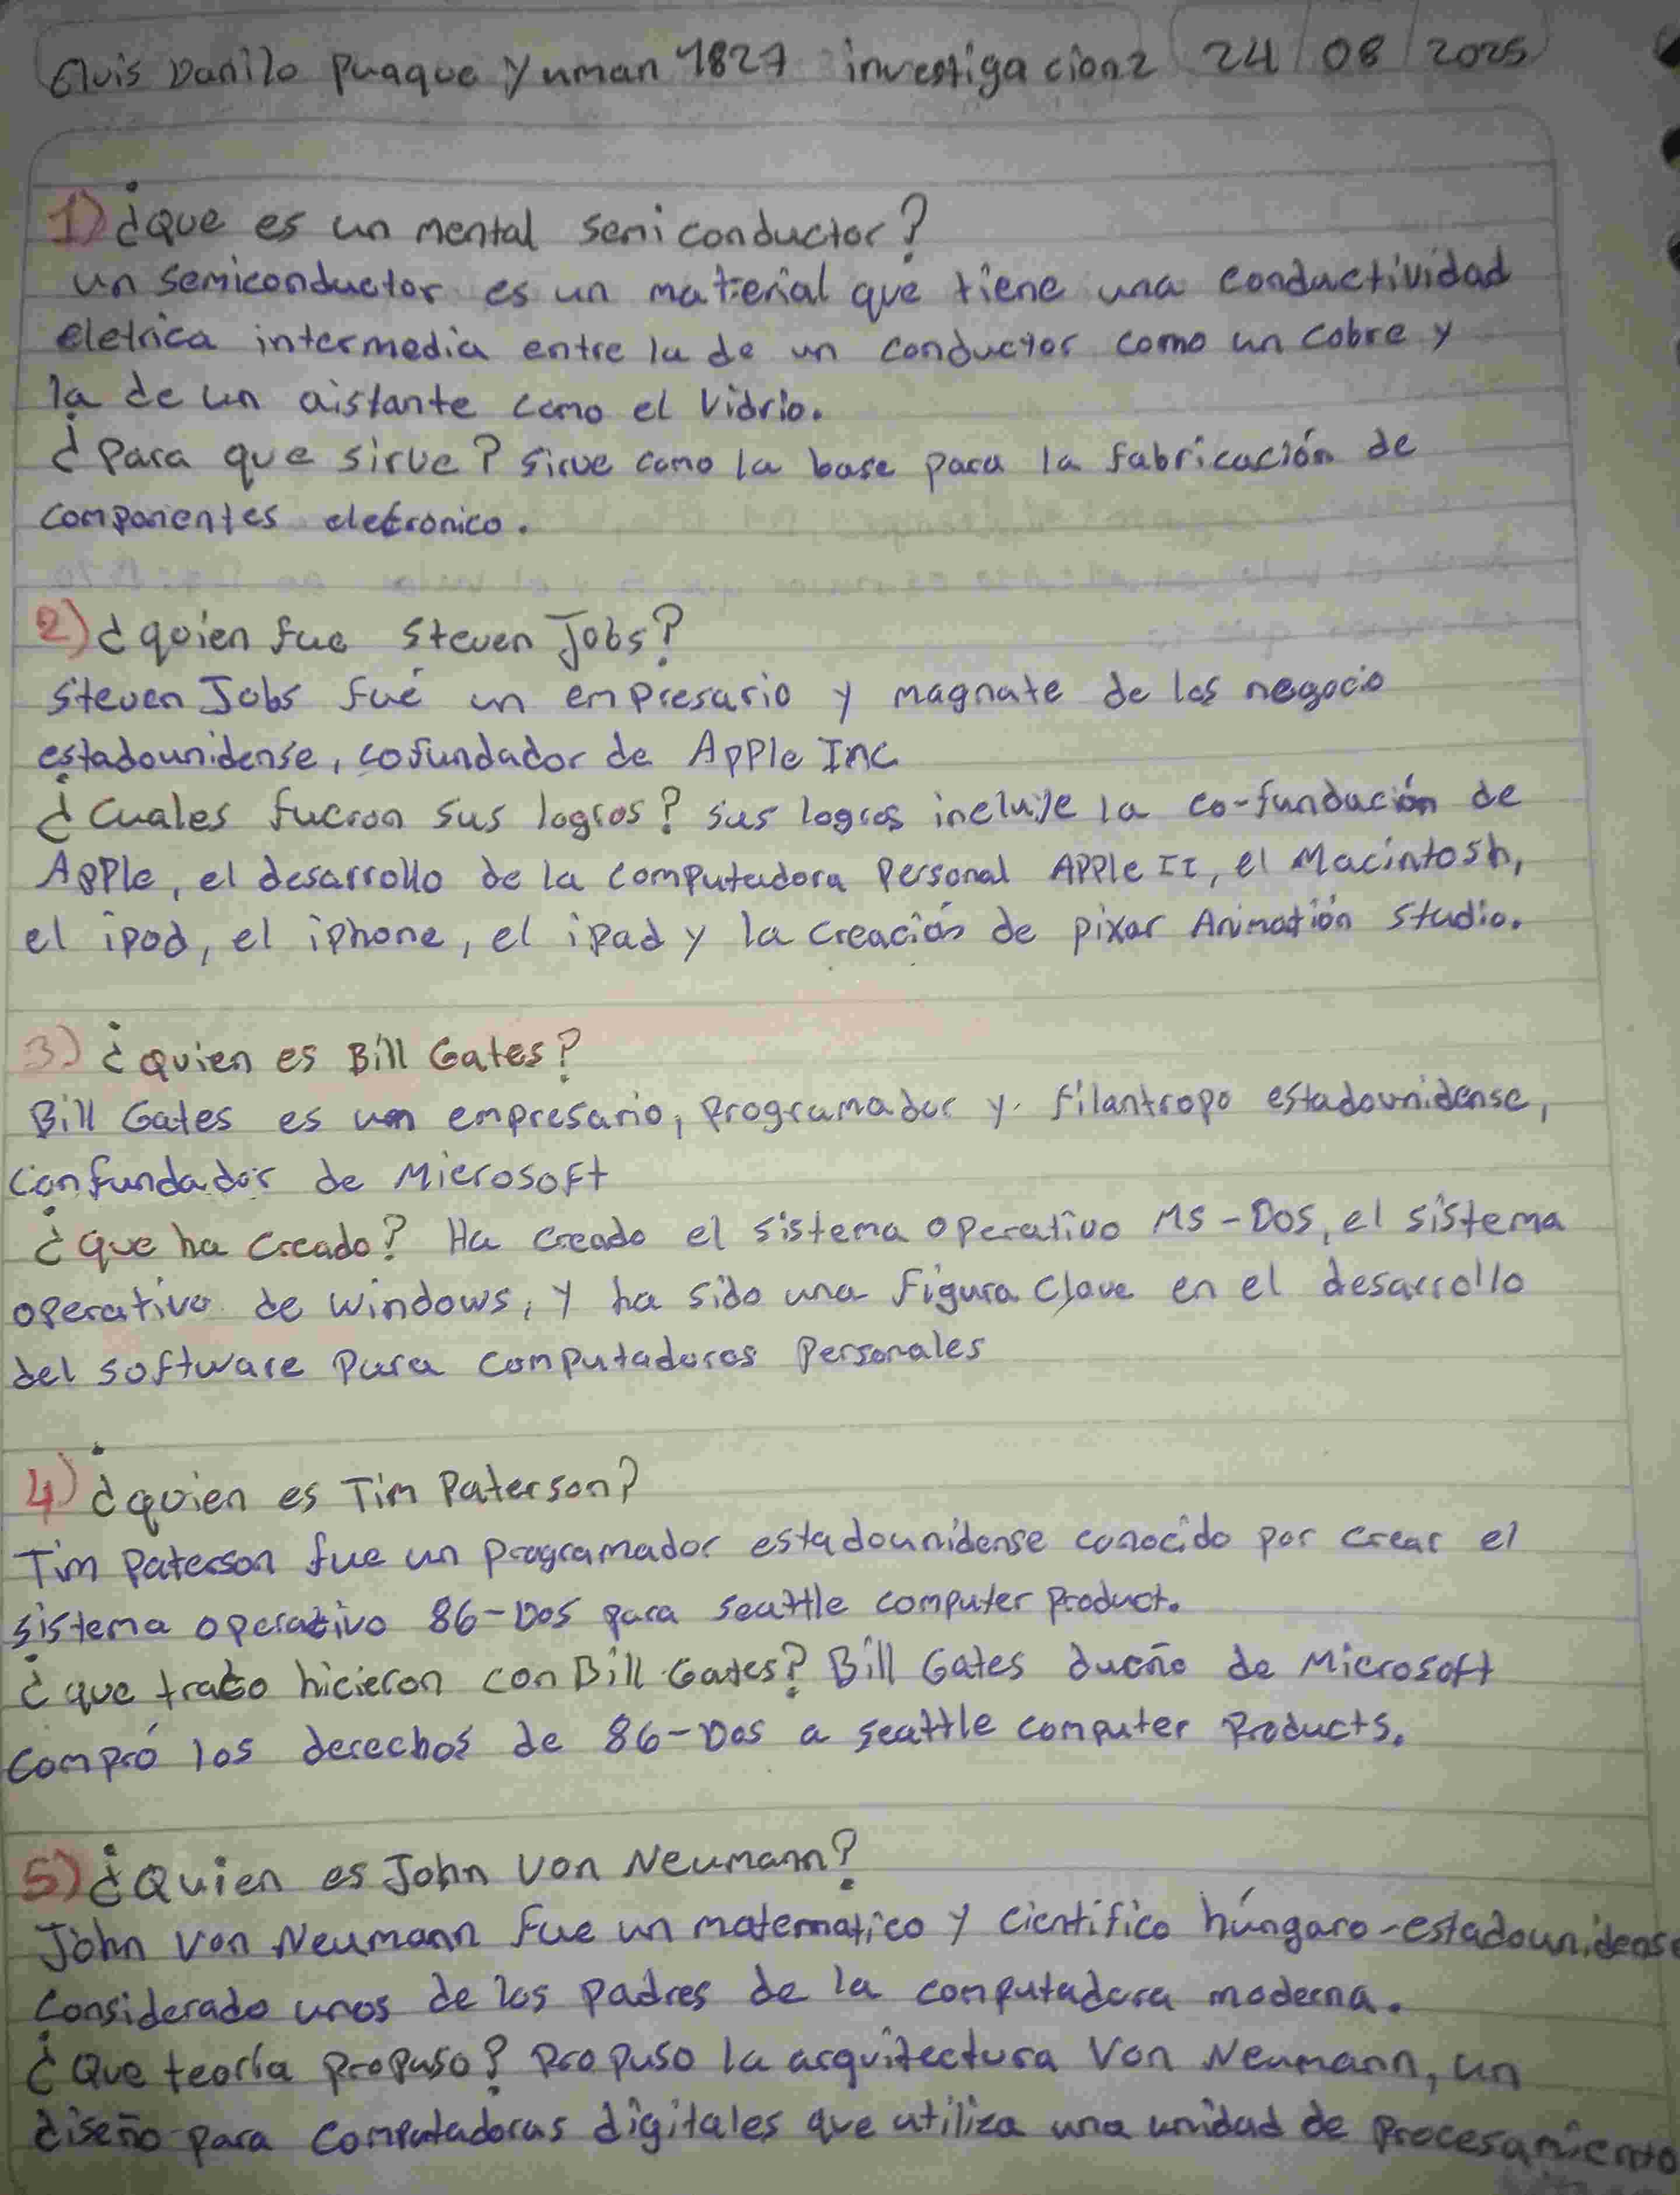 Elvis Danilo Puaque Yuman 1827 investigacion2 24/08/2025
1) ¿que es un mental semiconductor?
un semiconductor es un material que tiene una conductividad
eletrica intermedia entre la de un conductor como un cobre y
la de un aislante como el vidrio.
¿Para que sirve? Sirve como la base para la fabricación de
componentes eletronico.
2) ¿quien fue Steven Jobs?
Steven Jobs fué un empresario y magnate de los negocio
estadounidense, cofundador de Apple Inc
¿Cuales fueron sus logros? sus logros incluye la co-fundación de
Apple, el desarrollo de la computadora Personal APPle II, el Macintosh,
el ipod, el iphone, el ipad y la creación de pixar Animatión Studio.
3) ¿Quien es Bill Gates?
Bill Gates es un empresario, programador y filantropo estadounidense,
confundador de Microsoft
¿que ha creado? Ha creado el sistema operativo MS-DOS, el sistema
operativo de windows, y ha sido una figura clave en el desarrollo
del software para computadoras Personales
4) ¿quien es Tim Paterson?
Tim Paterson fue un programador estadounidense conocido por crear el
sistema operativo 86-Dos para seattle computer product.
¿que trato hicieron con Bill Gates? Bill Gates dueño de Microsoft
compró los derechos de 86-Dos a seattle computer Products.
5) ¿Quien es John Von Neumann?
John Von Neumann fue un matematico y cientifico húngaro-estadounidense
Considerado unos de los padres de la computadora moderna.
¿Que teoria propuso? Propuso la arquitectura Von Neumann, un
diseño para computadoras digitales que utiliza una unidad de Procesamiento